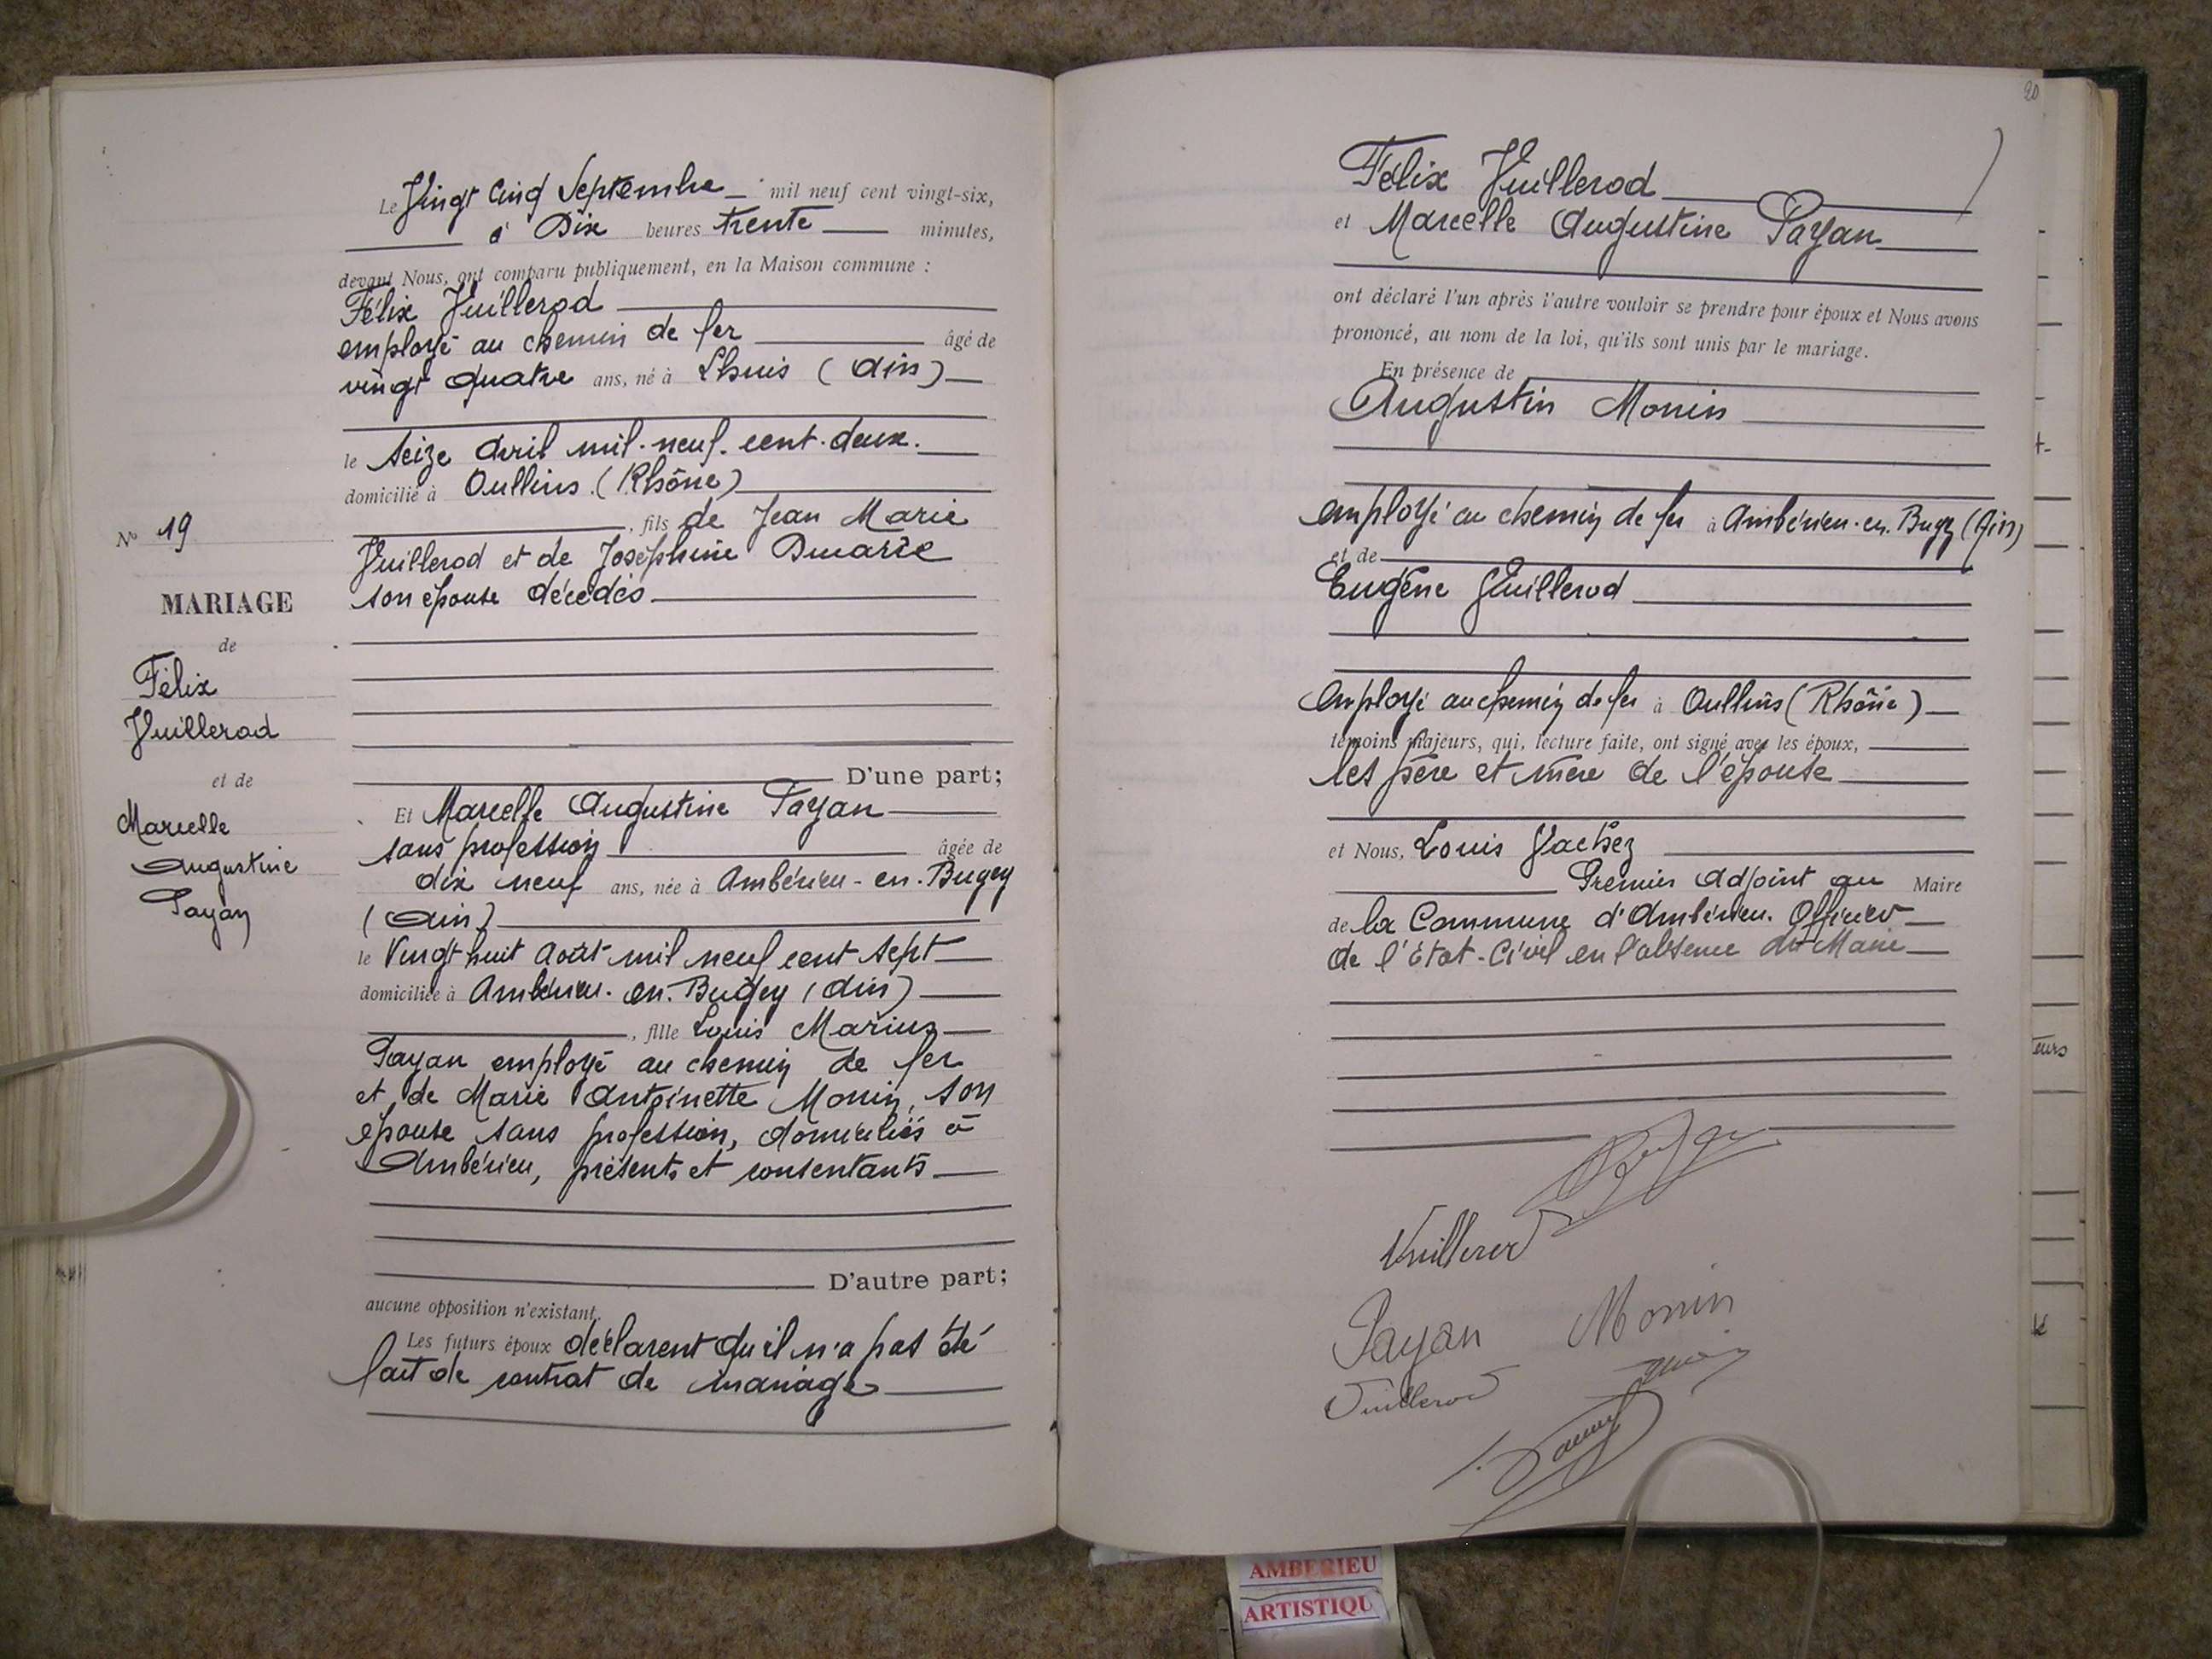 Le Vingt Cinq Septembre mil neuf cent vingt-six,
à Dix heures trente minutes,
devant Nous, ont comparu publiquement, en la Maison commune :
Félix Vuillerod
employé au chemin de fer âgé de
vingt quatre ans, né à Lhuis (Ain)
le seize Avril mil-neuf-cent-deux.
domicilié à Oullins (Rhône)
, fils de Jean Marie
Vuillerod et de Joséphine
son épouse décédés
D'une part;
Et Marcelle Augustine Payan
sans profession âgée de
dix neuf ans, née à Ambérieu-en-Bugey
(Ain)
le Vingt huit Août mil neuf cent sept
domiciliée à Ambérieu-en-Bugey (Ain)
, fille Louis Marius
Payan employé au chemin de fer
et de Marie Antoinette Monin, son
épouse sans profession, domiciliés à
Ambérieu, présents et consentants
D'autre part;
aucune opposition n'existant.
Les futurs époux déclarent qu'il n'a pas été
fait de contrat de mariage
No 19
MARIAGE
de
Félix
Vuillerod
et de
Marcelle
Augustine
Payan
20
Félix Vuillerod
et Marcelle Augustine Payan
ont déclaré l'un après l'autre vouloir se prendre pour époux et Nous avons
prononcé, au nom de la loi, qu'ils sont unis par le mariage.
En présence de
Augustin Monin
employé au chemin de fer à Ambérieu-en-Bugey (Ain)
et de
Eugène Vuillerod
employé au chemin de fer à Oullins (Rhône)
témoins majeurs, qui, lecture faite, ont signé avec les époux,
les père et mère de l'épouse
et Nous, Louis Vachez
Premier Adjoint au Maire
de la Commune d'Ambérieu. Officier
de l'État-Civil en l'absence du Maire
Vuillerod
Payan Monin
Vuillerod
AMBERIEU
ARTISTIQU